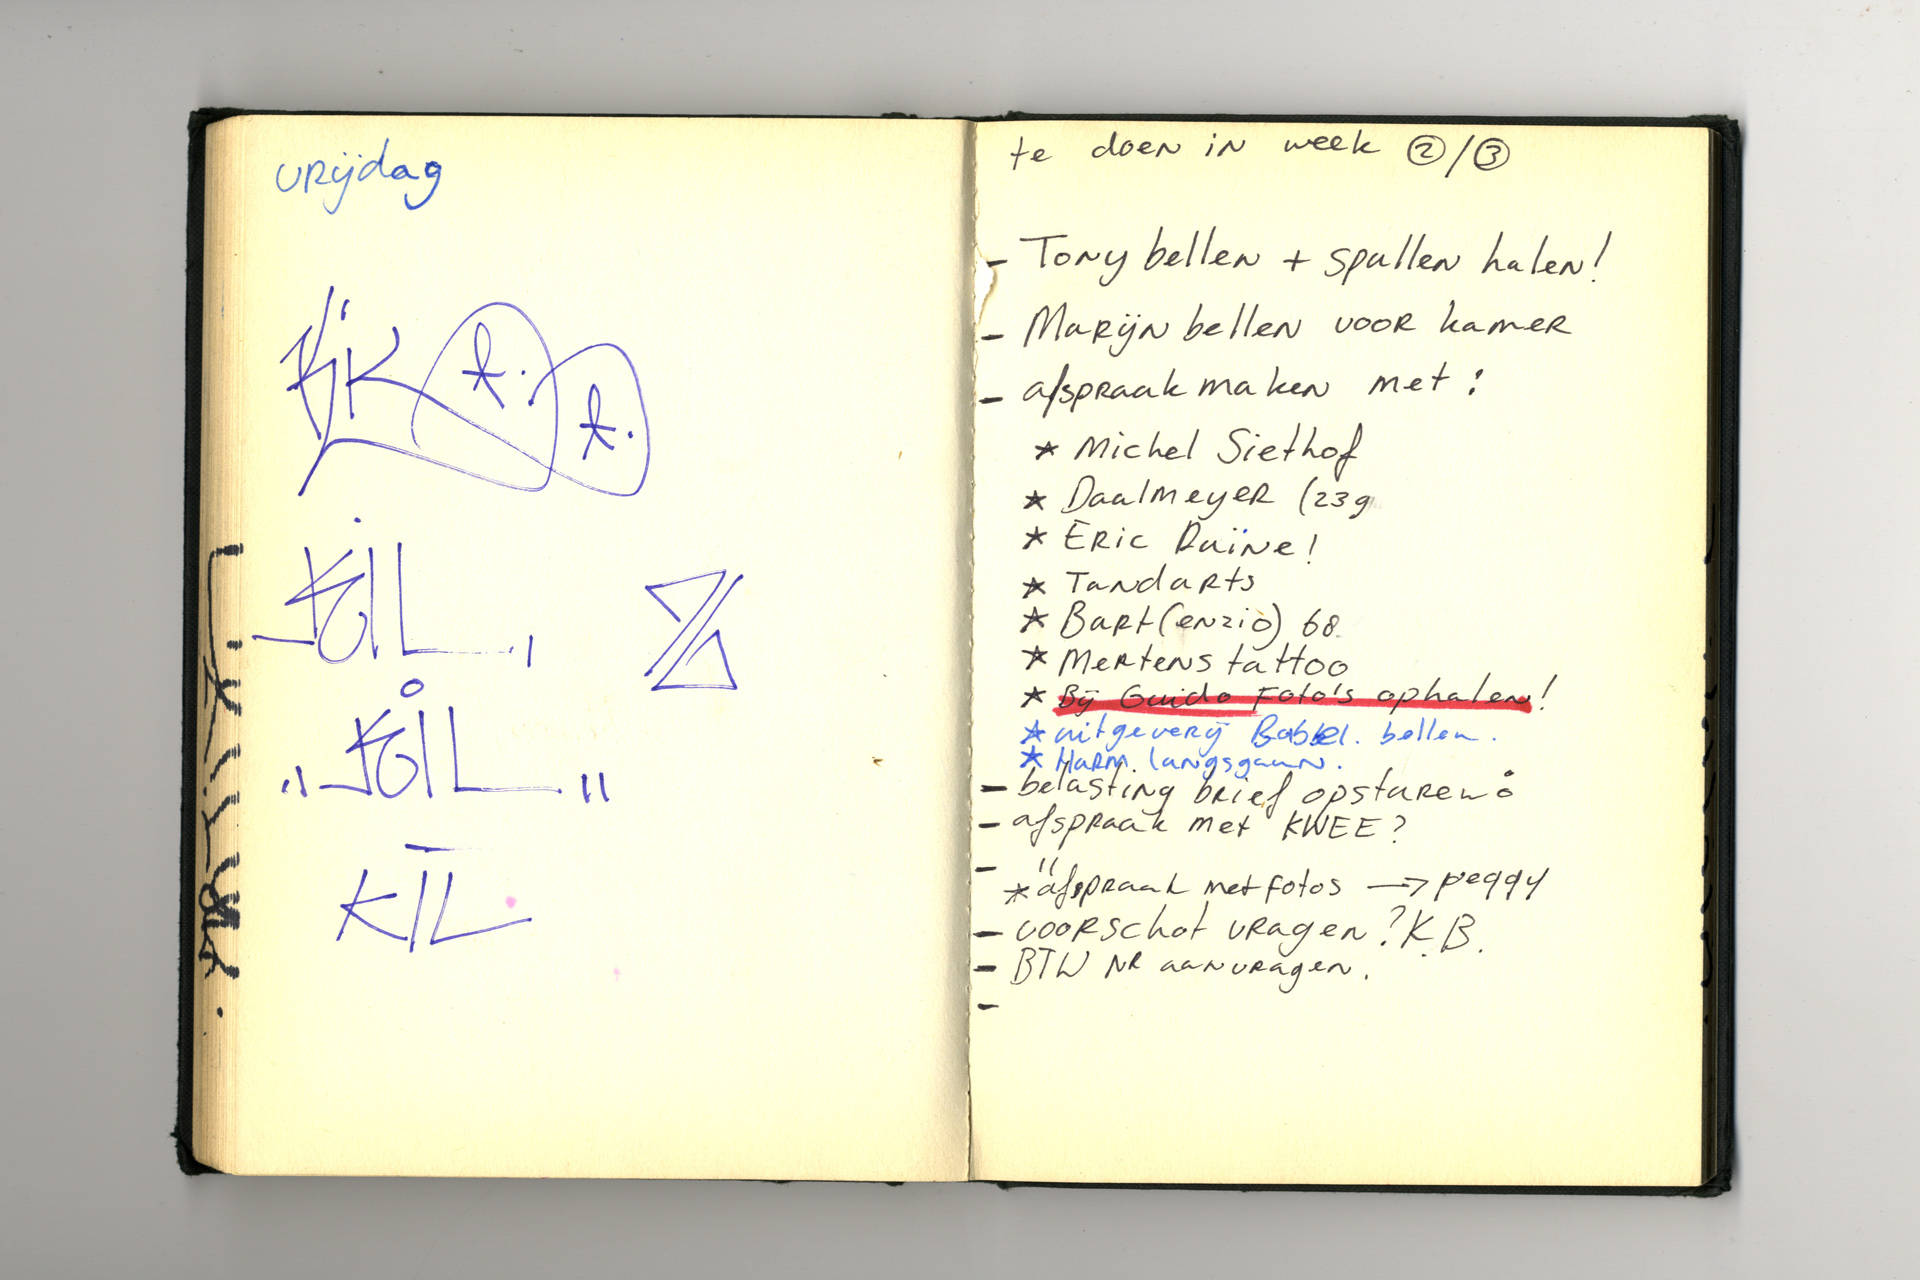 vrijdag
KIL
te doen in week 2/3
- Tony bellen + spullen halen!
- Marijn bellen voor kamer
- afspraak maken met:
* Michel Siethof
* Daalmeyer (239
* Eric Duïne!
* Tandarts
* Bart (enzio) 68
* Mertens tattoo
* Bij Guido Foto's ophalen!
* uitgeverij Babbel. bellen.
* Harm. langsgaan.
- belasting brief opsturen
- afspraak met KWEE?
- "
* afspraak met fotos → peggy
- voorschot vragen? K.B.
- BTW NR aanvragen.
-